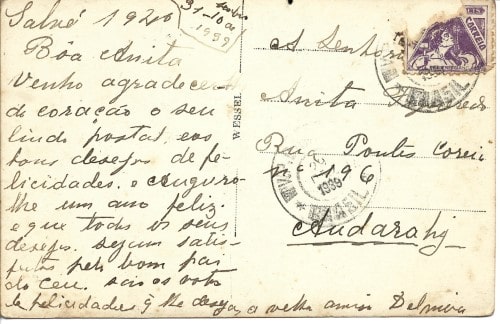 Salve 1920
31-10
1939
Bôa Anita
Venho agradecer
de coração o seu
lindo postal, e os
bons desejos de fe-
licidades. e Auguro-
lhe um ano feliz
e que todos os seus
desejos. sejam satis-
feitos pelo bom pai
do Ceu. são os votos
de felicidades q lhe deseja a velha amiga Delmira
WESSEL
A
Anita
Rua Pontes Correia
nº 196
Andarahy
CORREIO
1939
BRASIL
BRASIL